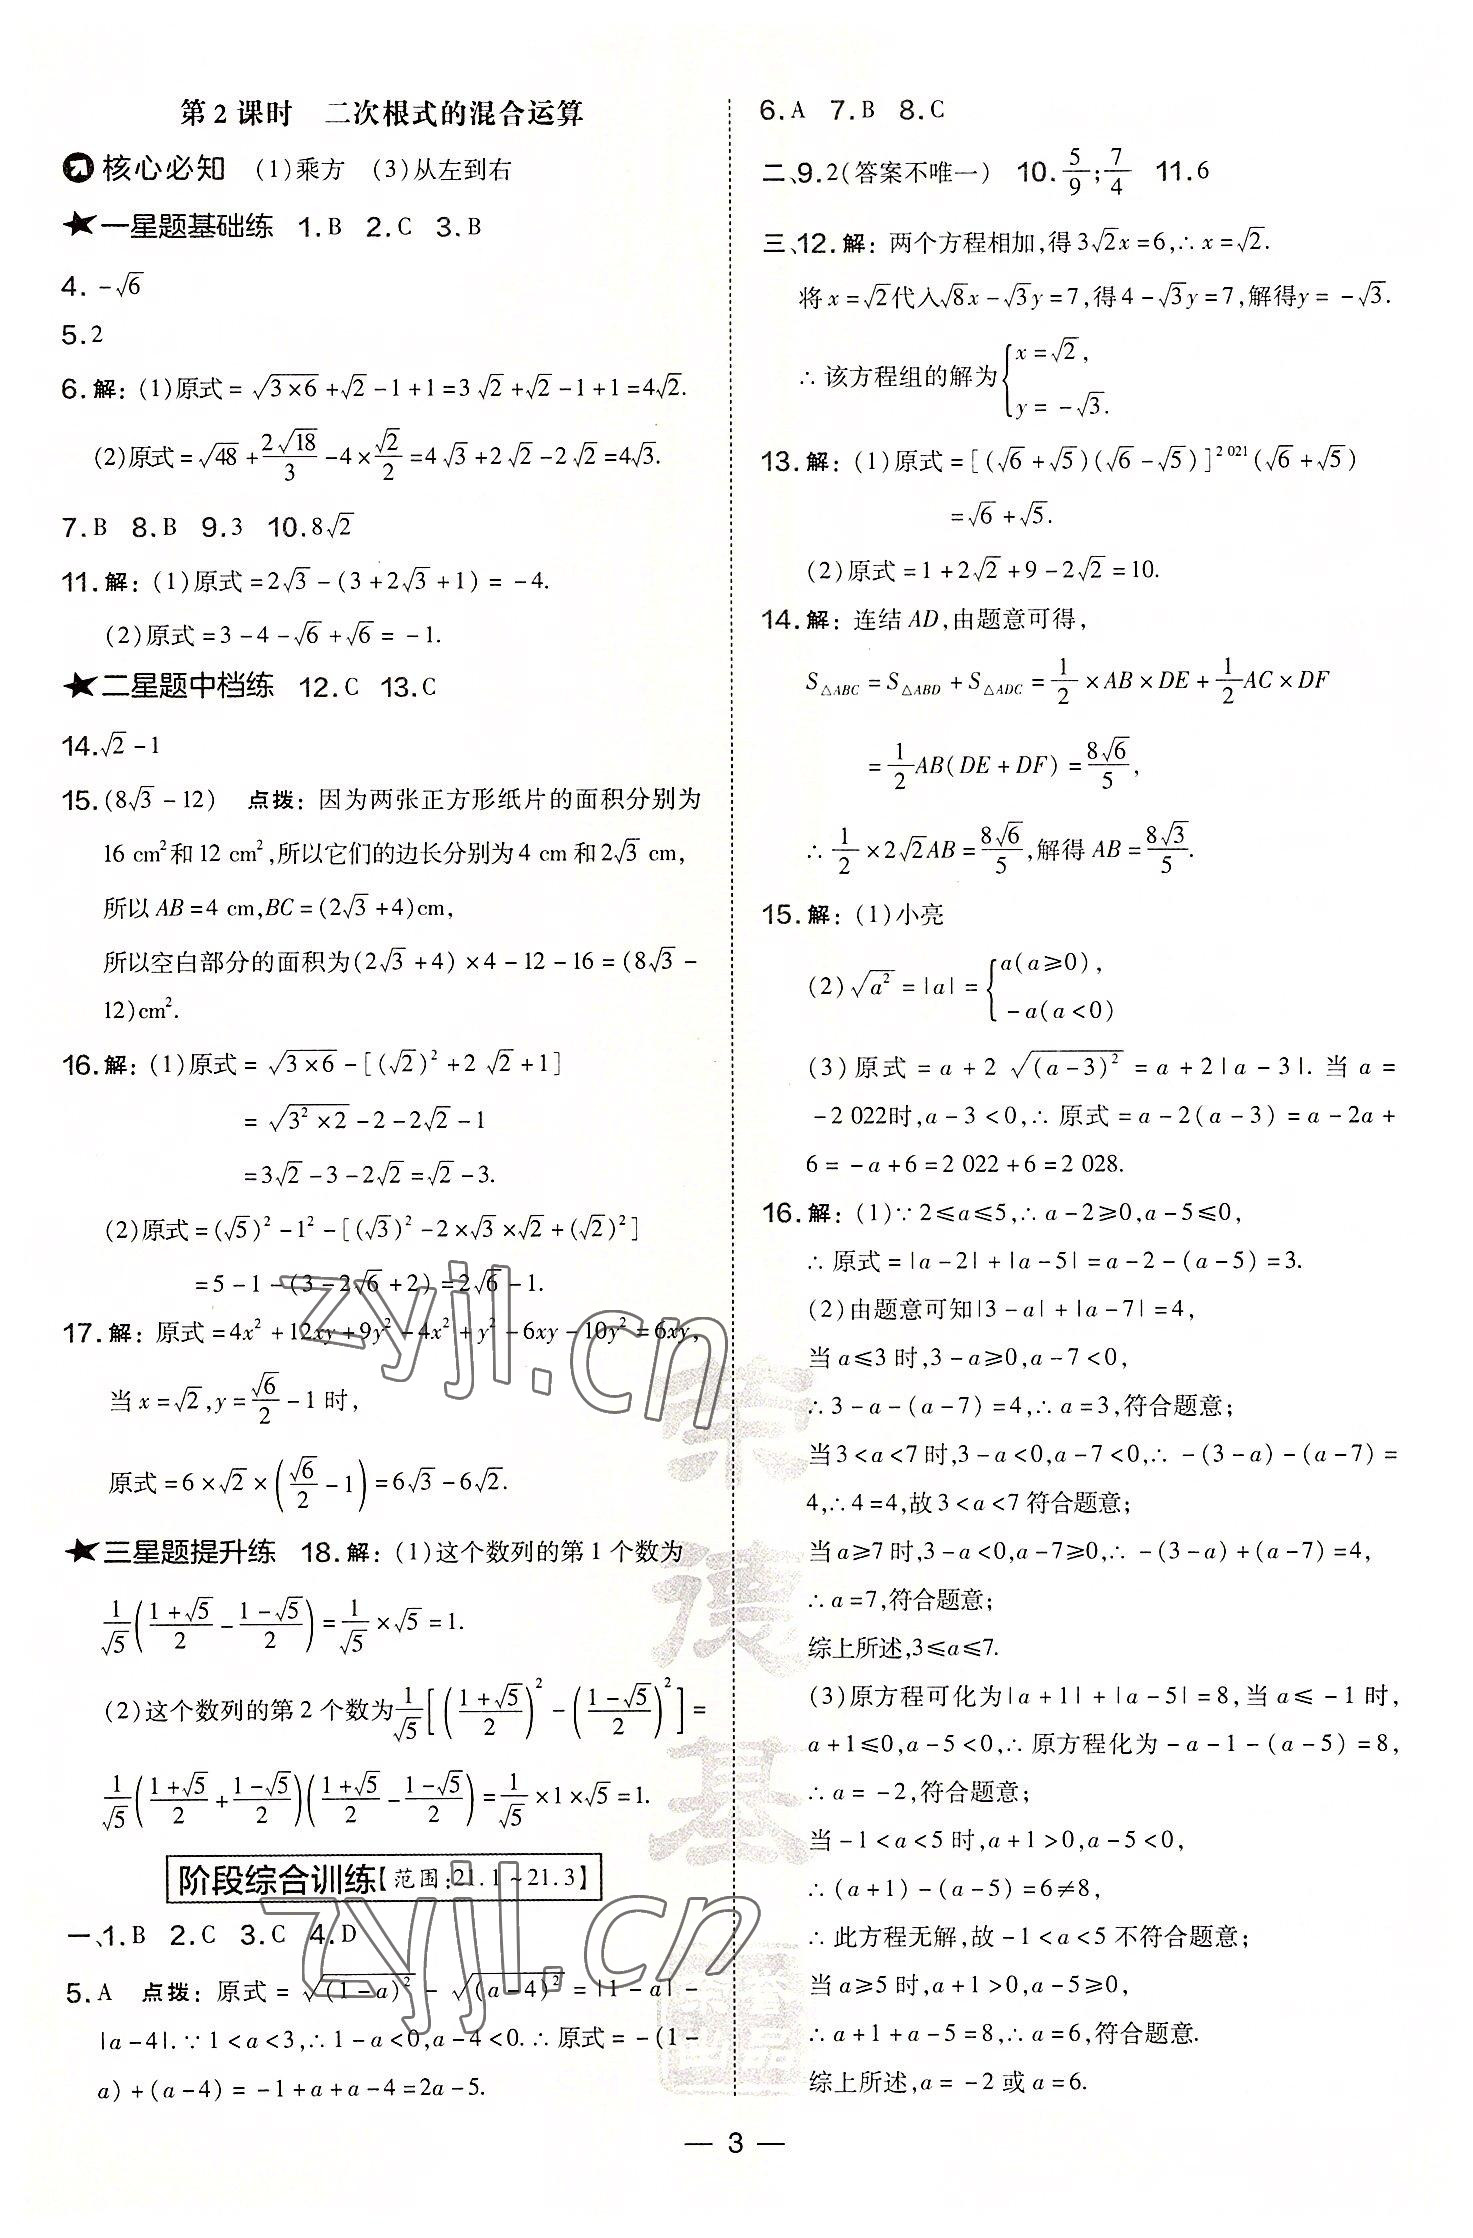 第2课时 二次根式的混合运算
核心必知 (1)乘方 (3)从左到右
★一星题基础练 1.B 2.C 3.B
4.-√6
5.2
6.解:(1)原式=√(3×6)+√2-1+1=3√2+√2-1+1=4√2.
(2)原式=√48+2√18/3-4×√2/2=4√3+2√2-2√2=4√3.
7.B 8.B 9.3 10.8√2
11.解:(1)原式=2√3-(3+2√3+1)=-4.
(2)原式=3-4-√6+√6=-1.
★二星题中档练 12.C 13.C
14.√2-1
15.(8√3-12) 点拨:因为两张正方形纸片的面积分别为
16 cm²和12 cm²,所以它们的边长分别为4 cm和2√3 cm,
所以AB=4 cm,BC=(2√3+4)cm,
所以空白部分的面积为(2√3+4)×4-12-16=(8√3-
12)cm².
16.解:(1)原式=√(3×6)-[(√2)²+2√2+1]
=√(3²×2)-2-2√2-1
=3√2-3-2√2=√2-3.
(2)原式=(√5)²-1²-[(√3)²-2×√3×√2+(√2)²]
=5-1-(3-2√6+2)=2√6-1.
17.解:原式=4x²+12xy+9y²-4x²+y²-6xy-10y²=6xy,
当x=√2,y=√6/2-1时,
原式=6×√2×(√6/2-1)=6√3-6√2.
★三星题提升练 18.解:(1)这个数列的第1个数为
1/√5((1+√5)/2-(1-√5)/2)=1/√5×√5=1.
(2)这个数列的第2个数为1/√5[((1+√5)/2)²-((1-√5)/2)²]=
1/√5((1+√5)/2+(1-√5)/2)((1+√5)/2-(1-√5)/2)=1/√5×1×√5=1.
阶段综合训练【范围:21.1~21.3】
一、1.B 2.C 3.C 4.D
5.A 点拨:原式=√(1-a)²-√(a-4)²=|1-a|-
|a-4|.∵1<a<3,∴1-a<0,a-4<0.∴原式=-(1-
a)+(a-4)=-1+a+a-4=2a-5.
6.A 7.B 8.C
二、9.2(答案不唯一) 10.5/9;7/4 11.6
三、12.解:两个方程相加,得3√2x=6,∴x=√2.
将x=√2代入√8x-√3y=7,得4-√3y=7,解得y=-√3.
∴该方程组的解为{x=√2,
y=-√3.
13.解:(1)原式=[(√6+√5)(√6-√5)]²⁰²¹(√6+√5)
=√6+√5.
(2)原式=1+2√2+9-2√2=10.
14.解:连结AD,由题意可得,
S△ABC=S△ABD+S△ADC=1/2×AB×DE+1/2AC×DF
=1/2AB(DE+DF)=8√6/5,
∴1/2×2√2AB=8√6/5,解得AB=8√3/5.
15.解:(1)小亮
(2)√a²=|a|={a(a≥0),
-a(a<0)
(3)原式=a+2√(a-3)²=a+2|a-3|.当a=
-2 022时,a-3<0,∴原式=a-2(a-3)=a-2a+
6=-a+6=2 022+6=2 028.
16.解:(1)∵2≤a≤5,∴a-2≥0,a-5≤0,
∴原式=|a-2|+|a-5|=a-2-(a-5)=3.
(2)由题意可知|3-a|+|a-7|=4,
当a≤3时,3-a≥0,a-7<0,
∴3-a-(a-7)=4,∴a=3,符合题意;
当3<a<7时,3-a<0,a-7<0,∴-(3-a)-(a-7)=
4,∴4=4,故3<a<7符合题意;
当a≥7时,3-a<0,a-7≥0,∴-(3-a)+(a-7)=4,
∴a=7,符合题意;
综上所述,3≤a≤7.
(3)原方程可化为|a+1|+|a-5|=8,当a≤-1时,
a+1≤0,a-5<0,∴原方程化为-a-1-(a-5)=8,
∴a=-2,符合题意;
当-1<a<5时,a+1>0,a-5<0,
∴(a+1)-(a-5)=6≠8,
∴此方程无解,故-1<a<5不符合题意;
当a≥5时,a+1>0,a-5≥0,
∴a+1+a-5=8,∴a=6,符合题意.
综上所述,a=-2或a=6.
zyjl.cn
zyjl.cn
荣德基
— 3 —